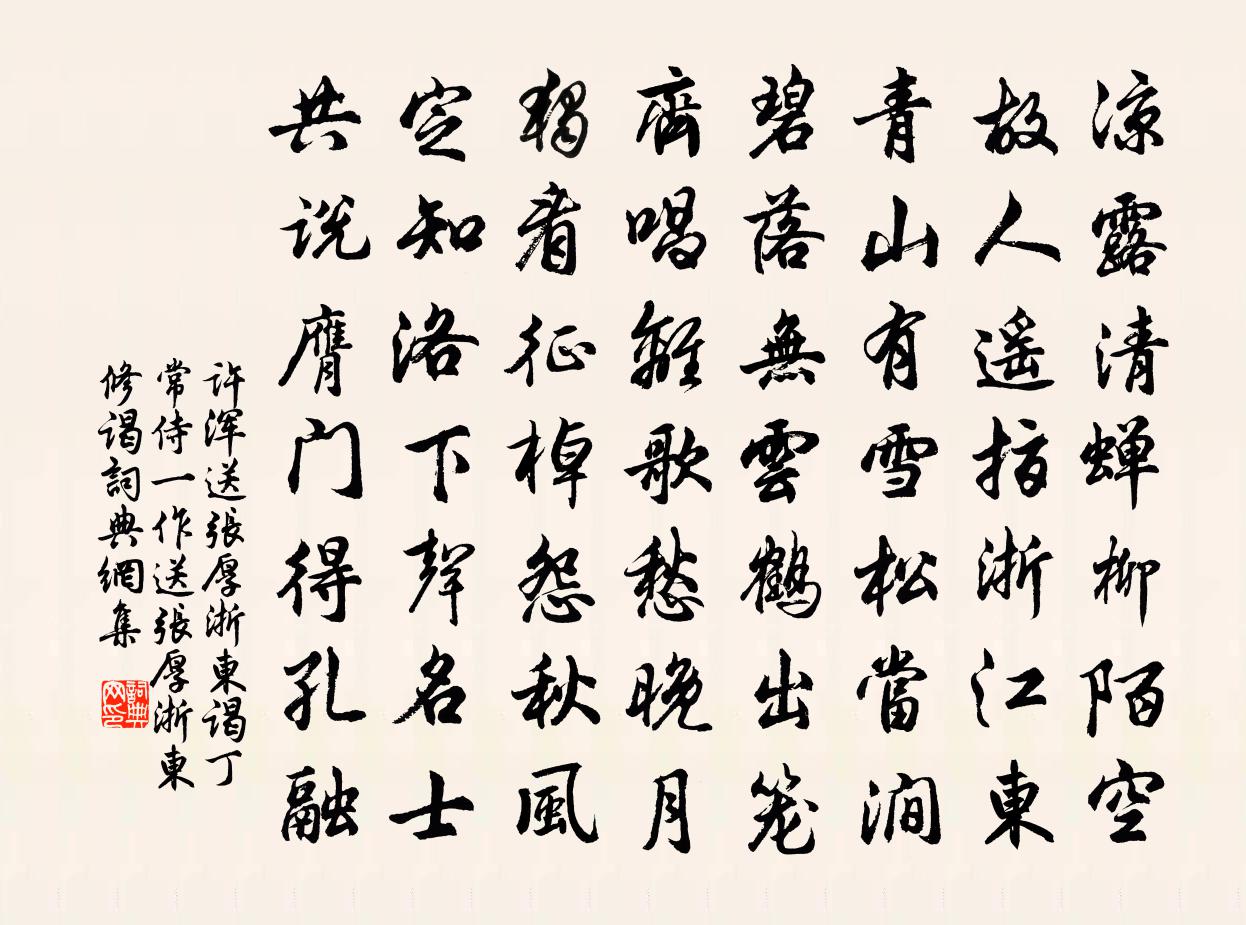 凉露清蝉柳陌空
故人遥指浙江東
青山有雪松當澗
碧落無雲鶴出笼
齊唱離歌愁晚月
獨看征棹怨秋風
定知洛下聲名士
共说膺门得孔融
许浑送張厚浙東谒丁
常侍一作送張厚浙東
修谒詞典網集
詞典
网印